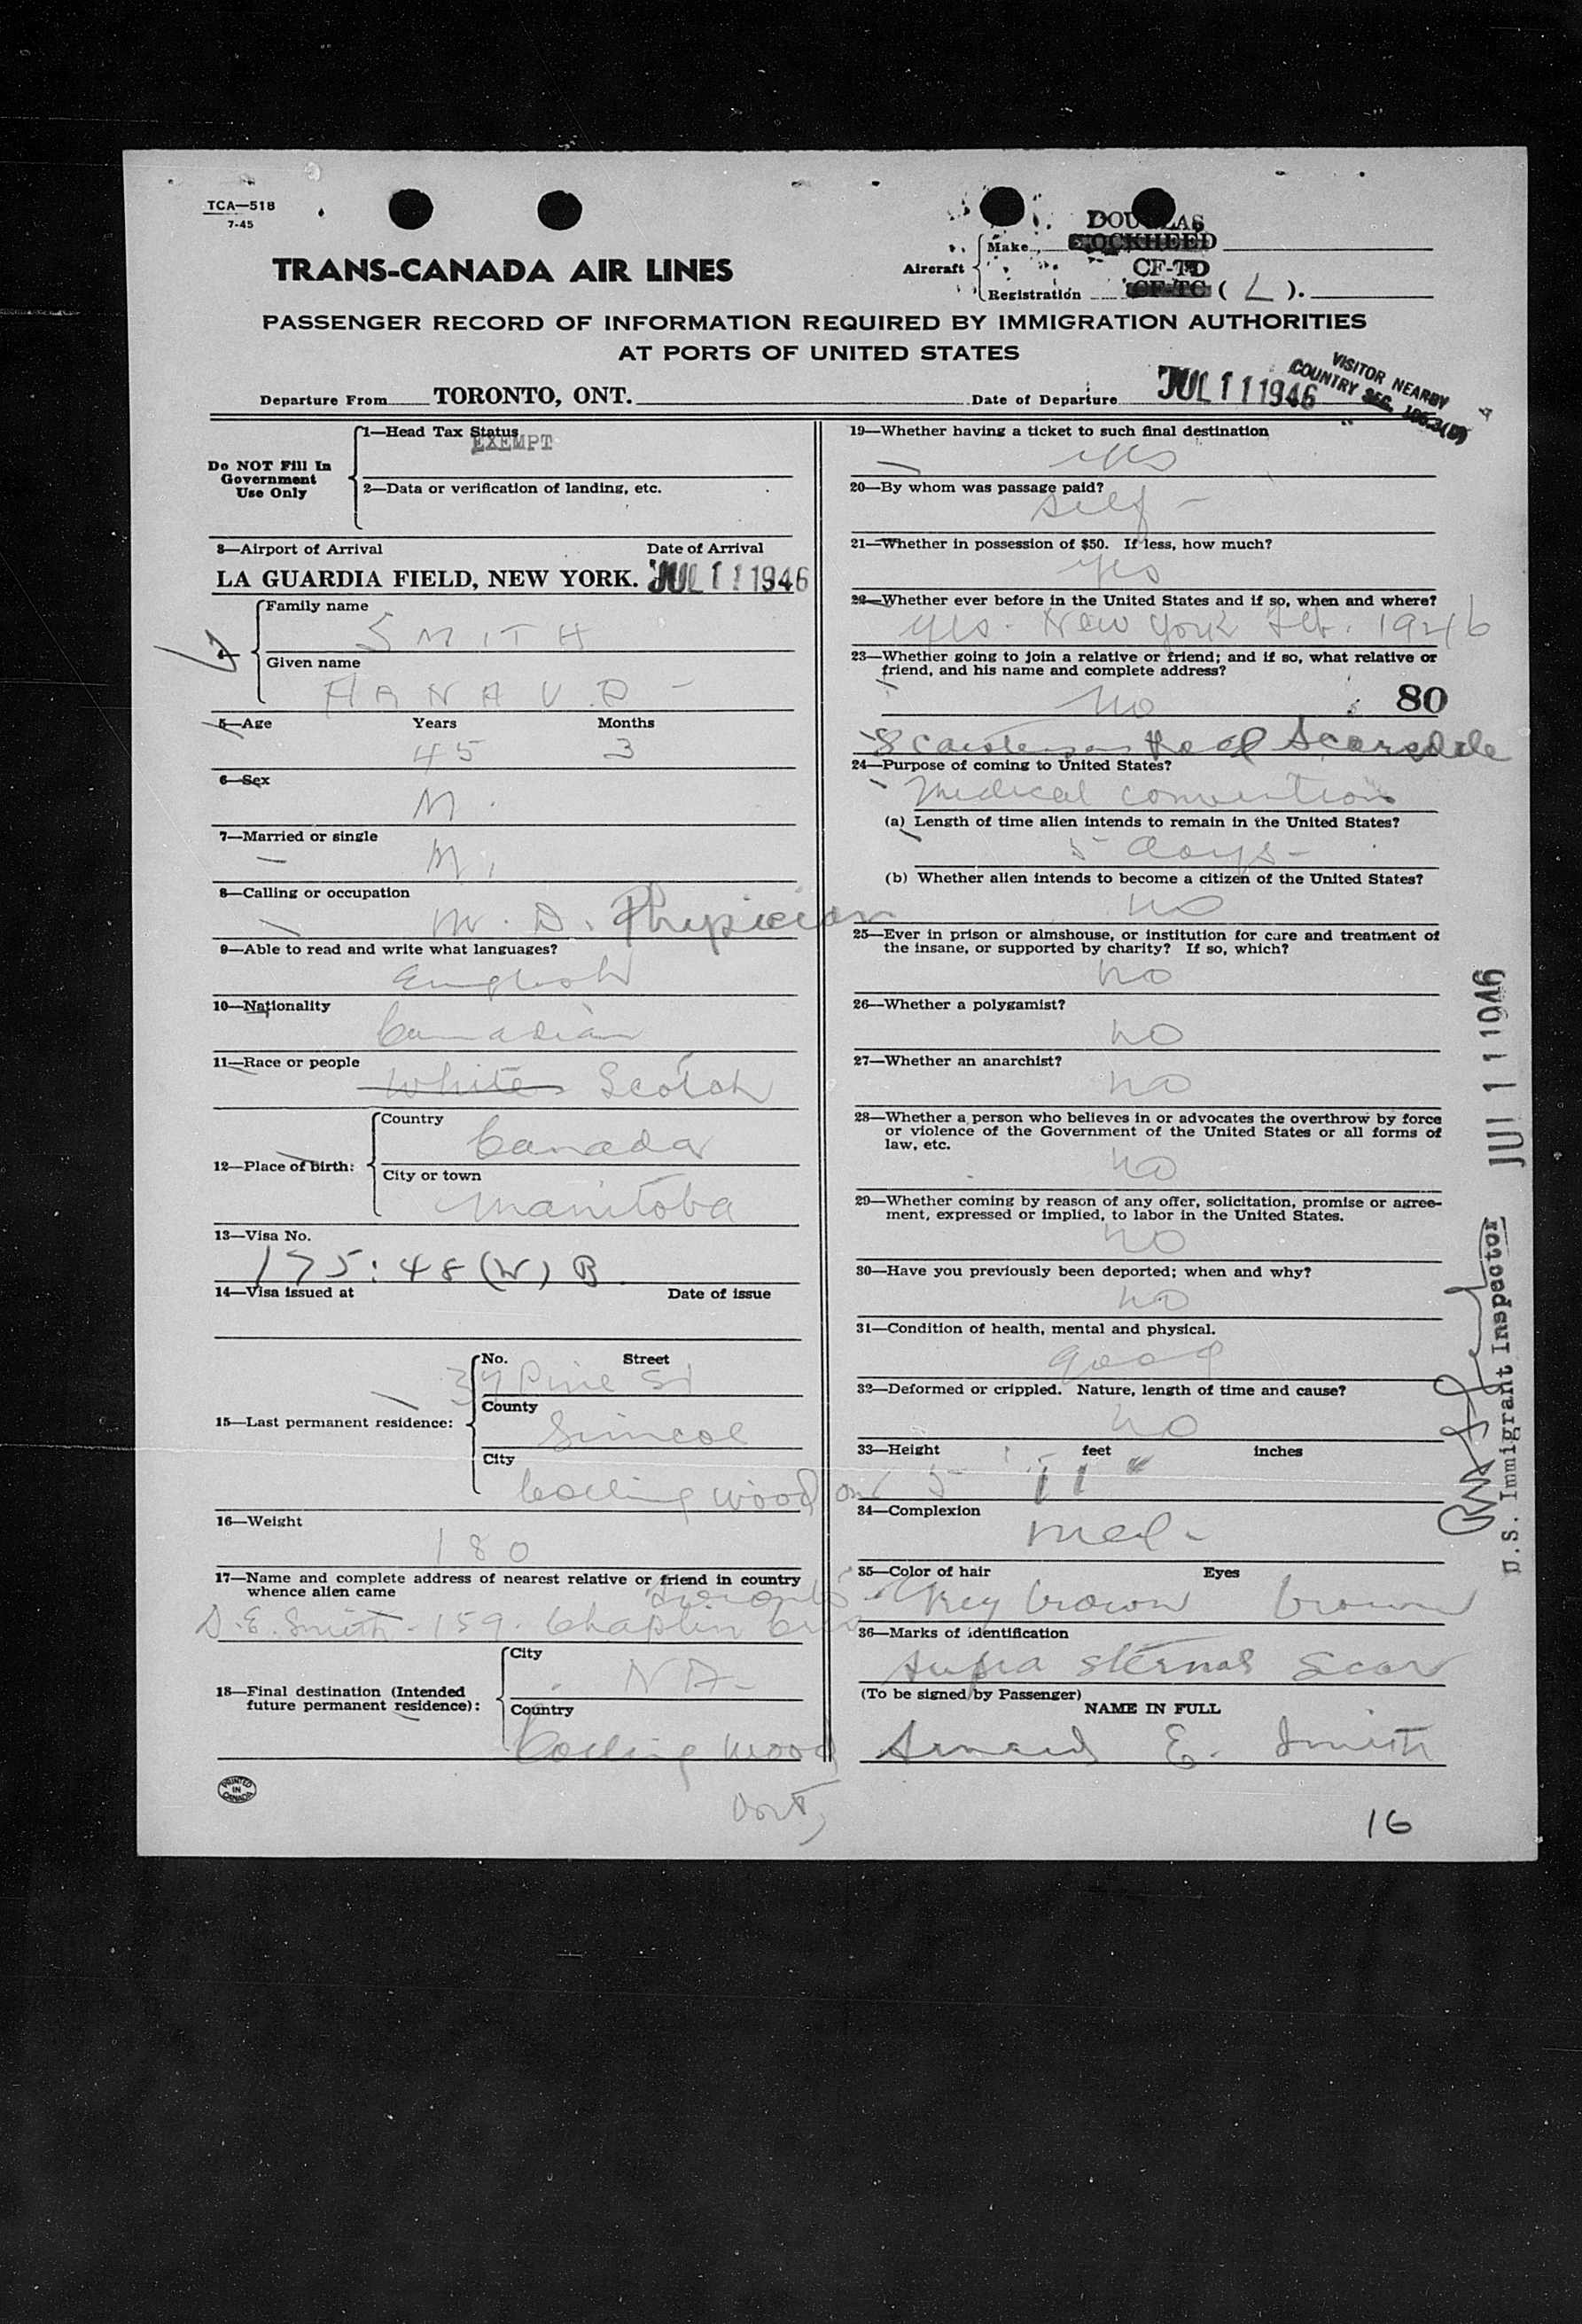 TCA—518
7-45
TRANS-CANADA AIR LINES
Aircraft
Make
DOUGLAS
LOCKHEED
Registration
CF-TD
CF-TC ( L ).
PASSENGER RECORD OF INFORMATION REQUIRED BY IMMIGRATION AUTHORITIES
AT PORTS OF UNITED STATES
Departure From TORONTO, ONT.
Date of Departure JUL 11 1946
VISITOR NEARBY
COUNTRY SEC.
Do NOT Fill In
Government
Use Only
1—Head Tax Status
EXEMPT
2—Data or verification of landing, etc.
3—Airport of Arrival Date of Arrival
LA GUARDIA FIELD, NEW YORK. JUL 11 1946
Family name
SMITH
Given name
5—Age Years Months
45 3
6—Sex
M.
7—Married or single
M.
8—Calling or occupation
M.D. Physician
9—Able to read and write what languages?
English
10—Nationality
Canadian
11—Race or people
White Scotch
12—Place of birth:
Country
Canada
City or town
Manitoba
13—Visa No.
175:48(W) B.
14—Visa issued at Date of issue
15—Last permanent residence:
No. Street
37 Pine St
County
Simcoe
City
Collingwood Ont
16—Weight
180
17—Name and complete address of nearest relative or friend in country
whence alien came
Toronto
D.E. Smith - 159 - Chaplin Cres
18—Final destination (Intended
future permanent residence):
City
Country
Collingwood
Ont,
PRINTED
IN
CANADA
19—Whether having a ticket to such final destination
yes
20—By whom was passage paid?
self -
21—Whether in possession of $50. If less, how much?
yes
22—Whether ever before in the United States and if so, when and where?
yes - New York Feb. 1946
23—Whether going to join a relative or friend; and if so, what relative or
friend, and his name and complete address?
no
80
8 Road Scarsdale
24—Purpose of coming to United States?
Medical convention
(a) Length of time alien intends to remain in the United States?
5 days -
(b) Whether alien intends to become a citizen of the United States?
no
25—Ever in prison or almshouse, or institution for care and treatment of
the insane, or supported by charity? If so, which?
no
26—Whether a polygamist?
no
27—Whether an anarchist?
no
28—Whether a person who believes in or advocates the overthrow by force
or violence of the Government of the United States or all forms of
law, etc.
no
29—Whether coming by reason of any offer, solicitation, promise or agree-
ment, expressed or implied, to labor in the United States.
no
30—Have you previously been deported; when and why?
no
31—Condition of health, mental and physical.
good
32—Deformed or crippled. Nature, length of time and cause?
no
33—Height feet inches
5 11"
34—Complexion
med -
35—Color of hair Eyes
Grey brown brown
36—Marks of identification
supra sternal scar
(To be signed by Passenger)
NAME IN FULL
E. Smith
16
JUL 11 1946
U.S. Immigrant Inspector